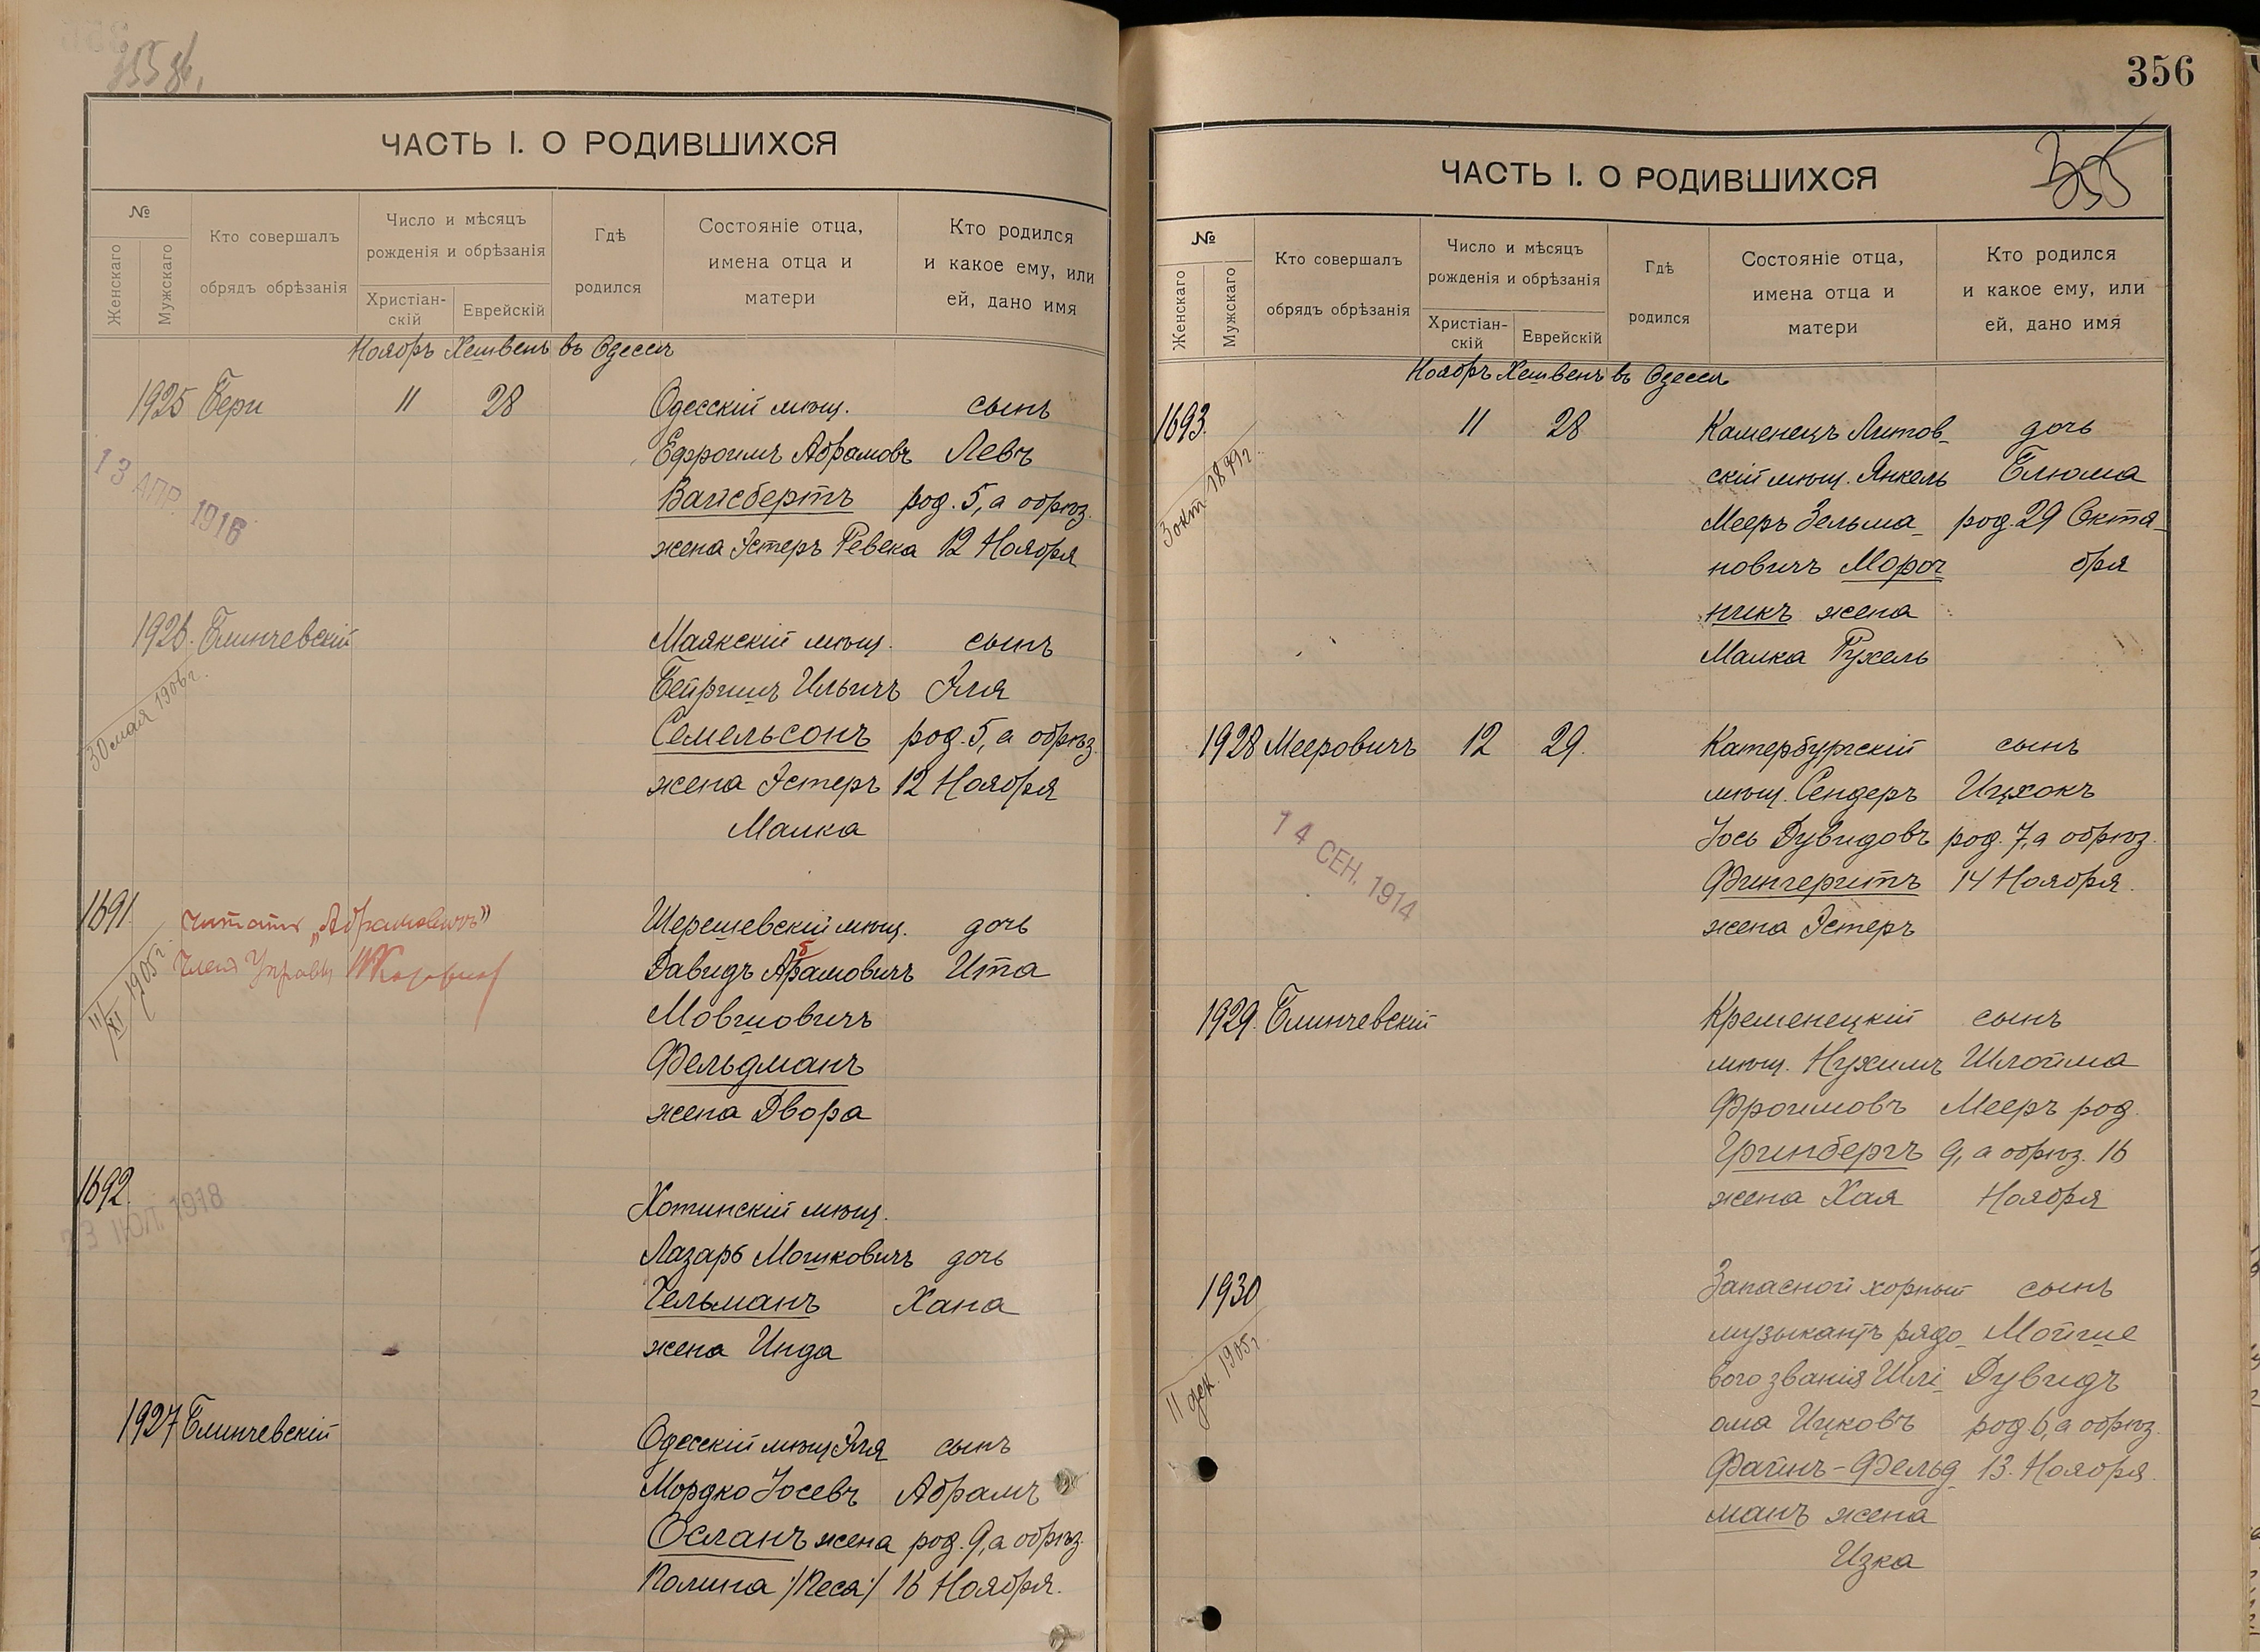 355 об.
ЧАСТЬ I. О РОДИВШИХСЯ
№
Женскаго
Мужскаго
Кто совершалъ
обрядъ обрѣзанія
Число и мѣсяцъ
рожденія и обрѣзанія
Христіан-
скій
Еврейскій
Гдѣ
родился
Состояніе отца,
имена отца и
матери
Кто родился
и какое ему, или
ей, дано имя
Ноябръ Хешвенъ въ Одессѣ
1925 Бери 11 28 Одесскій мѣщ. сынъ
Ефроимъ Абрамовъ Левъ
Вайсбертъ род. 5, а обрѣз.
жена Эстеръ Ревека 12 Ноября
13 АПР. 1916
1926. Блинчевскій Маякскій мѣщ. сынъ
Бейришъ Ильичъ Эля
Семельсонъ род. 5, а обрѣз.
жена Эстеръ 12 Ноября
Малка
30 мая 1906 г.
1691. Шерешевскій мѣщ. дочь
читать „Абрамовичъ"
Членъ Управы
Давидъ Арамовичъ Ита
б
Мовшовичъ
Фельдманъ
жена Двора
11/XI 1905 г.
1692. Хотинскій мѣщ.
Лазарь Мошковичъ дочь
Гельманъ Хана
жена Инда
23 ИЮЛ. 1918
1927 Блинчевскій Одесскій мѣщ Эля сынъ
Мордко Іосевъ Абрамъ
Осланъ жена род. 9, а обрѣз.
Полина /:Песя:/ 16 Ноября.
356
355
ЧАСТЬ I. О РОДИВШИХСЯ
№
Женскаго
Мужскаго
Кто совершалъ
обрядъ обрѣзанія
Число и мѣсяцъ
рожденія и обрѣзанія
Христіан-
скій
Еврейскій
Гдѣ
родился
Состояніе отца,
имена отца и
матери
Кто родился
и какое ему, или
ей, дано имя
Ноябръ Хешвенъ въ Одессѣ
1693. 11 28 Каменецъ Литов- дочь
скій мѣщ. Янкель Блюма
Мееръ Зельма- род. 29 Октя-
новичъ Мороч- бря
никъ жена
Малка Рухель
3 окт 1899 г.
1928 Мееровичъ 12 29. Катербургскій сынъ
мѣщ. Сендеръ Ицхокъ
Іось Дувидовъ род. 7, а обрѣз.
Фингеритъ 14 Ноября.
жена Эстеръ
14 СЕН. 1914
1929. Блинчевскій Кременецкій сынъ
мѣщ. Нухимъ Шлойма
Фроимовъ Мееръ род.
Гринбергъ 9, а обрѣз. 16
жена Хая Ноября
1930 Запасной хорный сынъ
музыкантъ рядо- Мойше
вого званія Шлі- Дувидъ
ома Ицковъ род. 6, а обрѣз.
Файнъ-Фельд- 13. Ноября.
манъ жена
Изка
11 дек. 1905 г